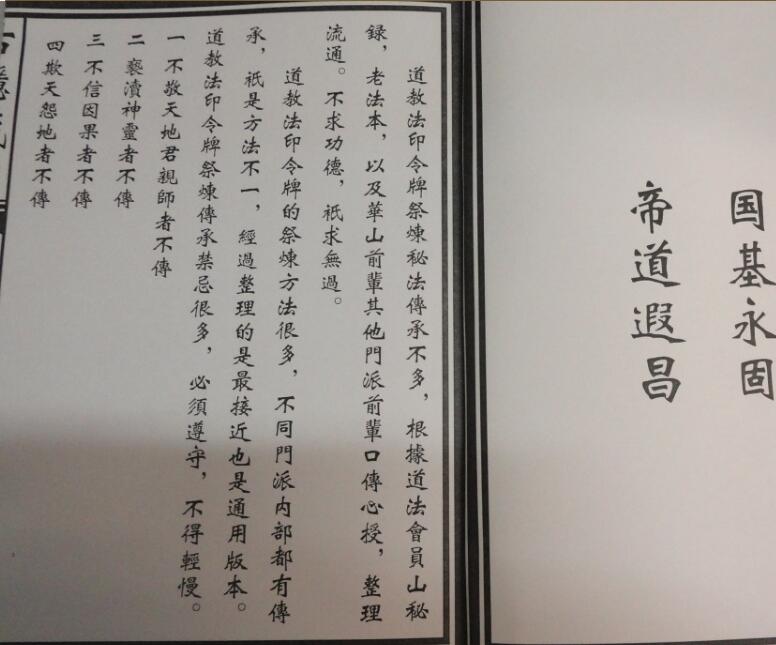 国基永固
帝道遐昌
道教法印令牌祭煉秘法傳承不多，根據道法會員山秘
録，老法本，以及華山前輩其他門派前輩口傳心授，整理
流通。不求功德，祇求無過。
道教法印令牌的祭煉方法很多，不同門派内部都有傳
承，祇是方法不一，經過整理的是最接近也是通用版本。
道教法印令牌祭煉傳承禁忌很多，必須遵守，不得輕慢。
一不敬天地君親師者不傳
二褻瀆神靈者不傳
三不信因果者不傳
四欺天怨地者不傳